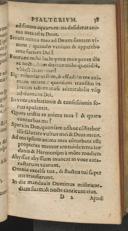 PSALTERIVM. 38
ad fontes aquarum: ita desiderat ani-
ma mea ad te Deus.
Sitiuit anima mea ad Deum fontem vi-
uum: quando veniam & apparebo
ante faciem Dei?
Fuerunt mihi lachrymæ meæ panes die
ac nocte: dum dicitur mihi quotidie,
Vbi est Deus tuus?
in me ani-
mam meam:
tabernaculi admirabilis vsq;
ad domum Dei.
In voce exultationis & confessionis: so-
nus epulantis.
Quare tristis es anima mea? & quare
conturbas me?
Spera in Deo, quoniam adhuc confitebor
illi: salutare vultus mei & Deus meus.
Ad me ipsum anima mea conturbata est:
propterea memor ero tui de terra Ior-
danis & Hermoniim à monte modico.
Abyssus abyssum inuocat: in voce cata-
ractarum tuarum.
Omnia excelsa tua, & fluctus tui super
me transierunt.
In die mandauit Dominus misericor-
diam suam: & nocte canticum eius.
D 2 Apud